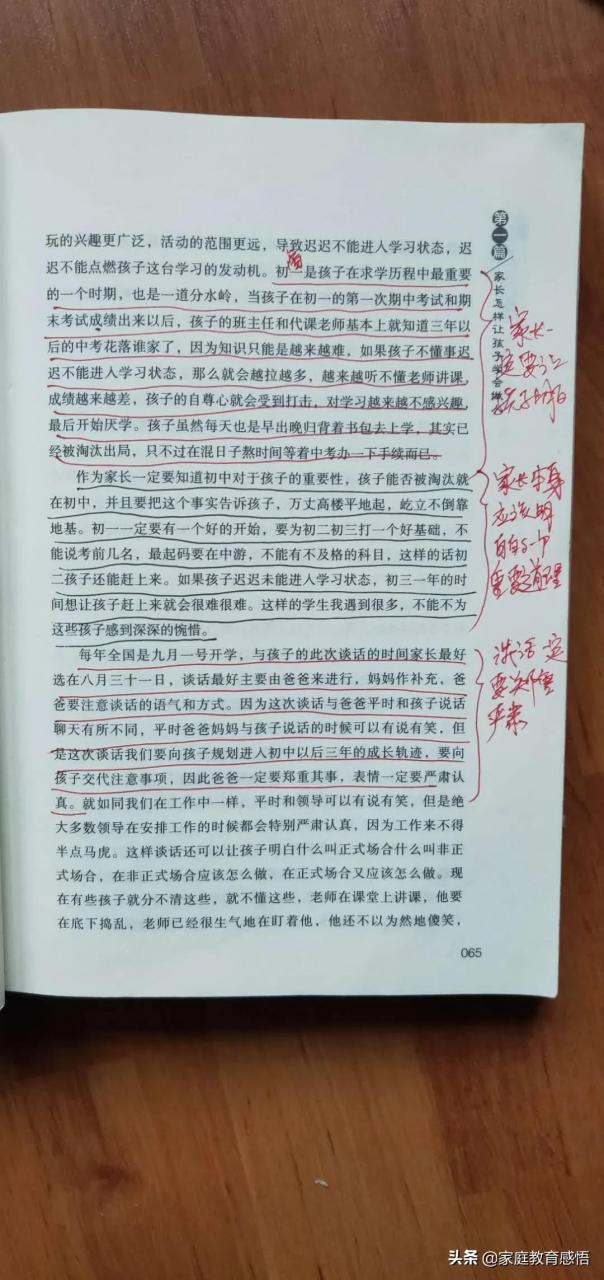 玩的兴趣更广泛，活动的范围更远，导致迟迟不能进入学习状态，迟
迟不能点燃孩子这台学习的发动机。初一是孩子在求学历程中最重要
的一个时期，也是一道分水岭，当孩子在初一的第一次期中考试和期
末考试成绩出来以后，孩子的班主任和代课老师基本上就知道三年以
后的中考花落谁家了，因为知识只能是越来越难，如果孩子不懂事迟
迟不能进入学习状态，那么就会越拉越多，越来越听不懂老师讲课，
成绩越来越差，孩子的自尊心就会受到打击，对学习越来越不感兴趣，
最后开始厌学。孩子虽然每天也是早出晚归背着书包去上学，其实已
经被淘汰出局，只不过在混日子熬时间等着中考办一下手续而已。
作为家长一定要知道初中对于孩子的重要性，孩子能否被淘汰就
在初中，并且要把这个事实告诉孩子，万丈高楼平地起，屹立不倒靠
地基。初一一定要有一个好的开始，要为初二初三打一个好基础，不
能说考前几名，最起码要在中游，不能有不及格的科目，这样的话初
二孩子还能赶上来。如果孩子迟迟未能进入学习状态，初三一年的时
间想让孩子赶上来就会很难很难。这样的学生我遇到很多，不能不为
这些孩子感到深深的惋惜。
每年全国是九月一号开学，与孩子的此次谈话的时间家长最好
选在八月三十一日，谈话最好主要由爸爸来进行，妈妈作补充，爸
爸要注意谈话的语气和方式。因为这次谈话与爸爸平时和孩子说话
聊天有所不同，平时爸爸妈妈与孩子说话的时候可以有说有笑，但
是这次谈话我们要向孩子规划进入初中以后三年的成长轨迹，要向
孩子交代注意事项，因此爸爸一定要郑重其事，表情一定要严肃认
真。就如同我们在工作中一样，平时和领导可以有说有笑，但是绝
大多数领导在安排工作的时候都会特别严肃认真，因为工作来不得
半点马虎。这样谈话还可以让孩子明白什么叫正式场合什么叫非正
式场合，在非正式场合应该怎么做，在正式场合又应该怎么做。现
在有些孩子就分不清这些，就不懂这些，老师在课堂上讲课，他要
在底下捣乱，老师已经很生气地在盯着他，他还不以为然地傻笑，
065
第一篇
家长怎样让孩子学会
家长一
定要让
孩子明白
家长本身
应该明
白的一个
重要道理
谈话一定
要郑重
严肃
头条 @家庭教育感悟